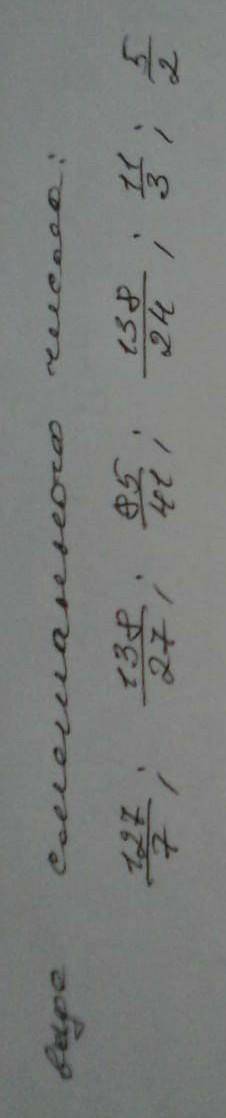 виде смешанного числа:
127/7; 138/27; 85/41; 138/24; 11/3; 5/2